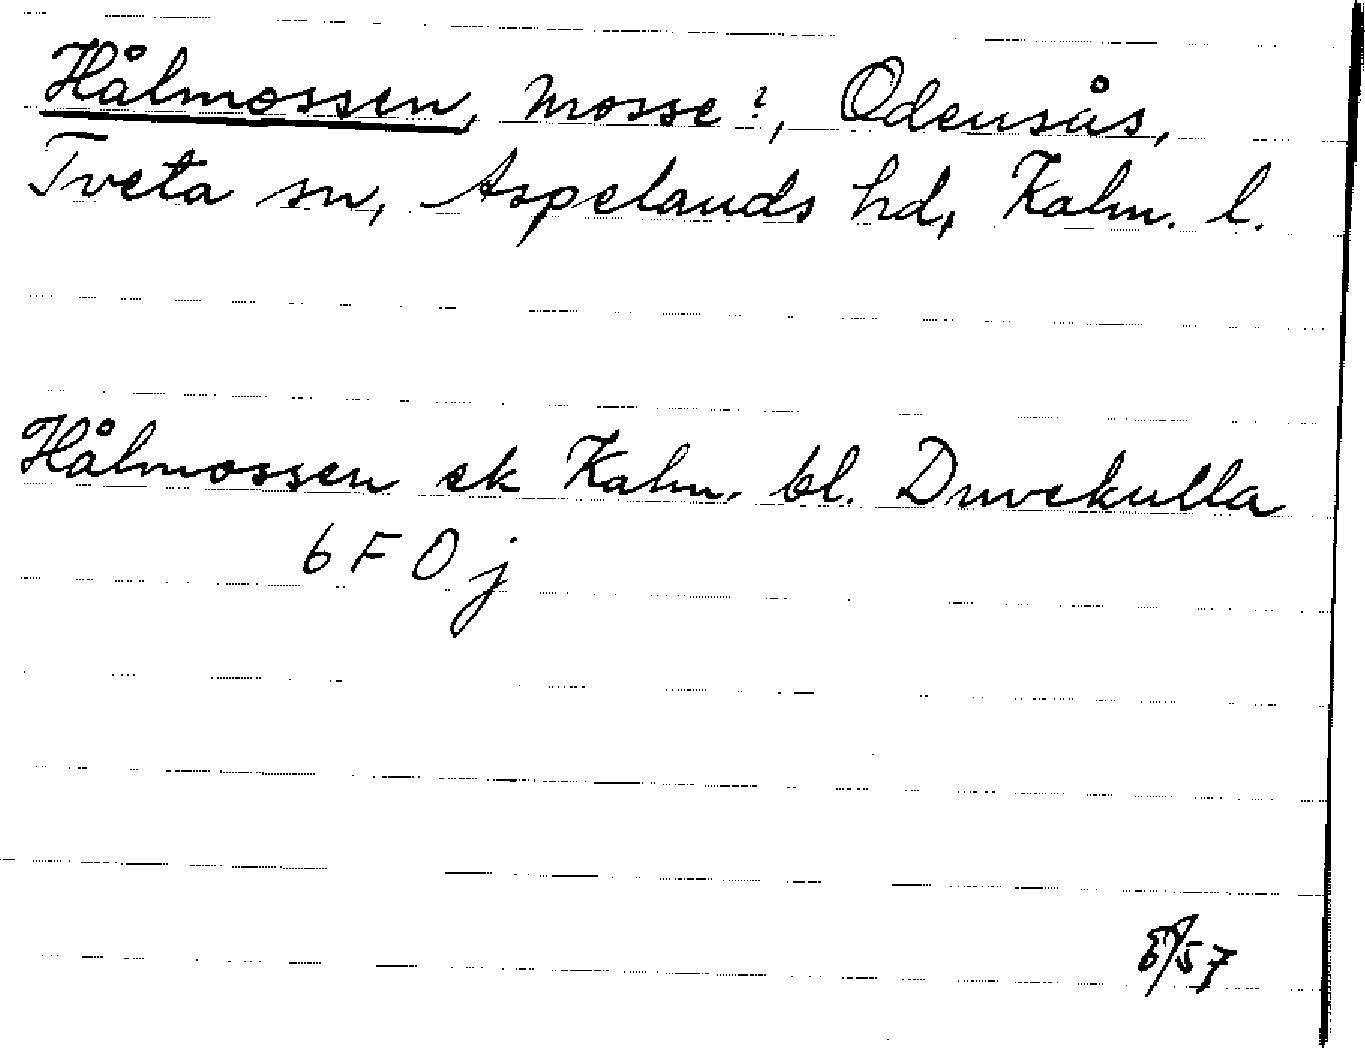 Hålmossen, mosse?, Odensås,
Tveta sn, Aspelands hd, Kalm. l.
Hålmossen ek Kalm. bl. Duvekulla
6 F 0 j